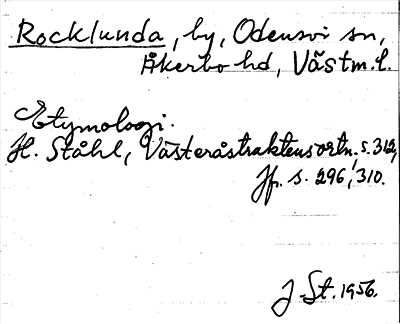 Rocklunda, by, Odensvi sn,
Åkerbo hd, Västm.l.
Etymologi.
H. Ståhl, Västeråstraktens ortn. s. 312,
Jfr. s. 296, 310.
J. St. 1956.